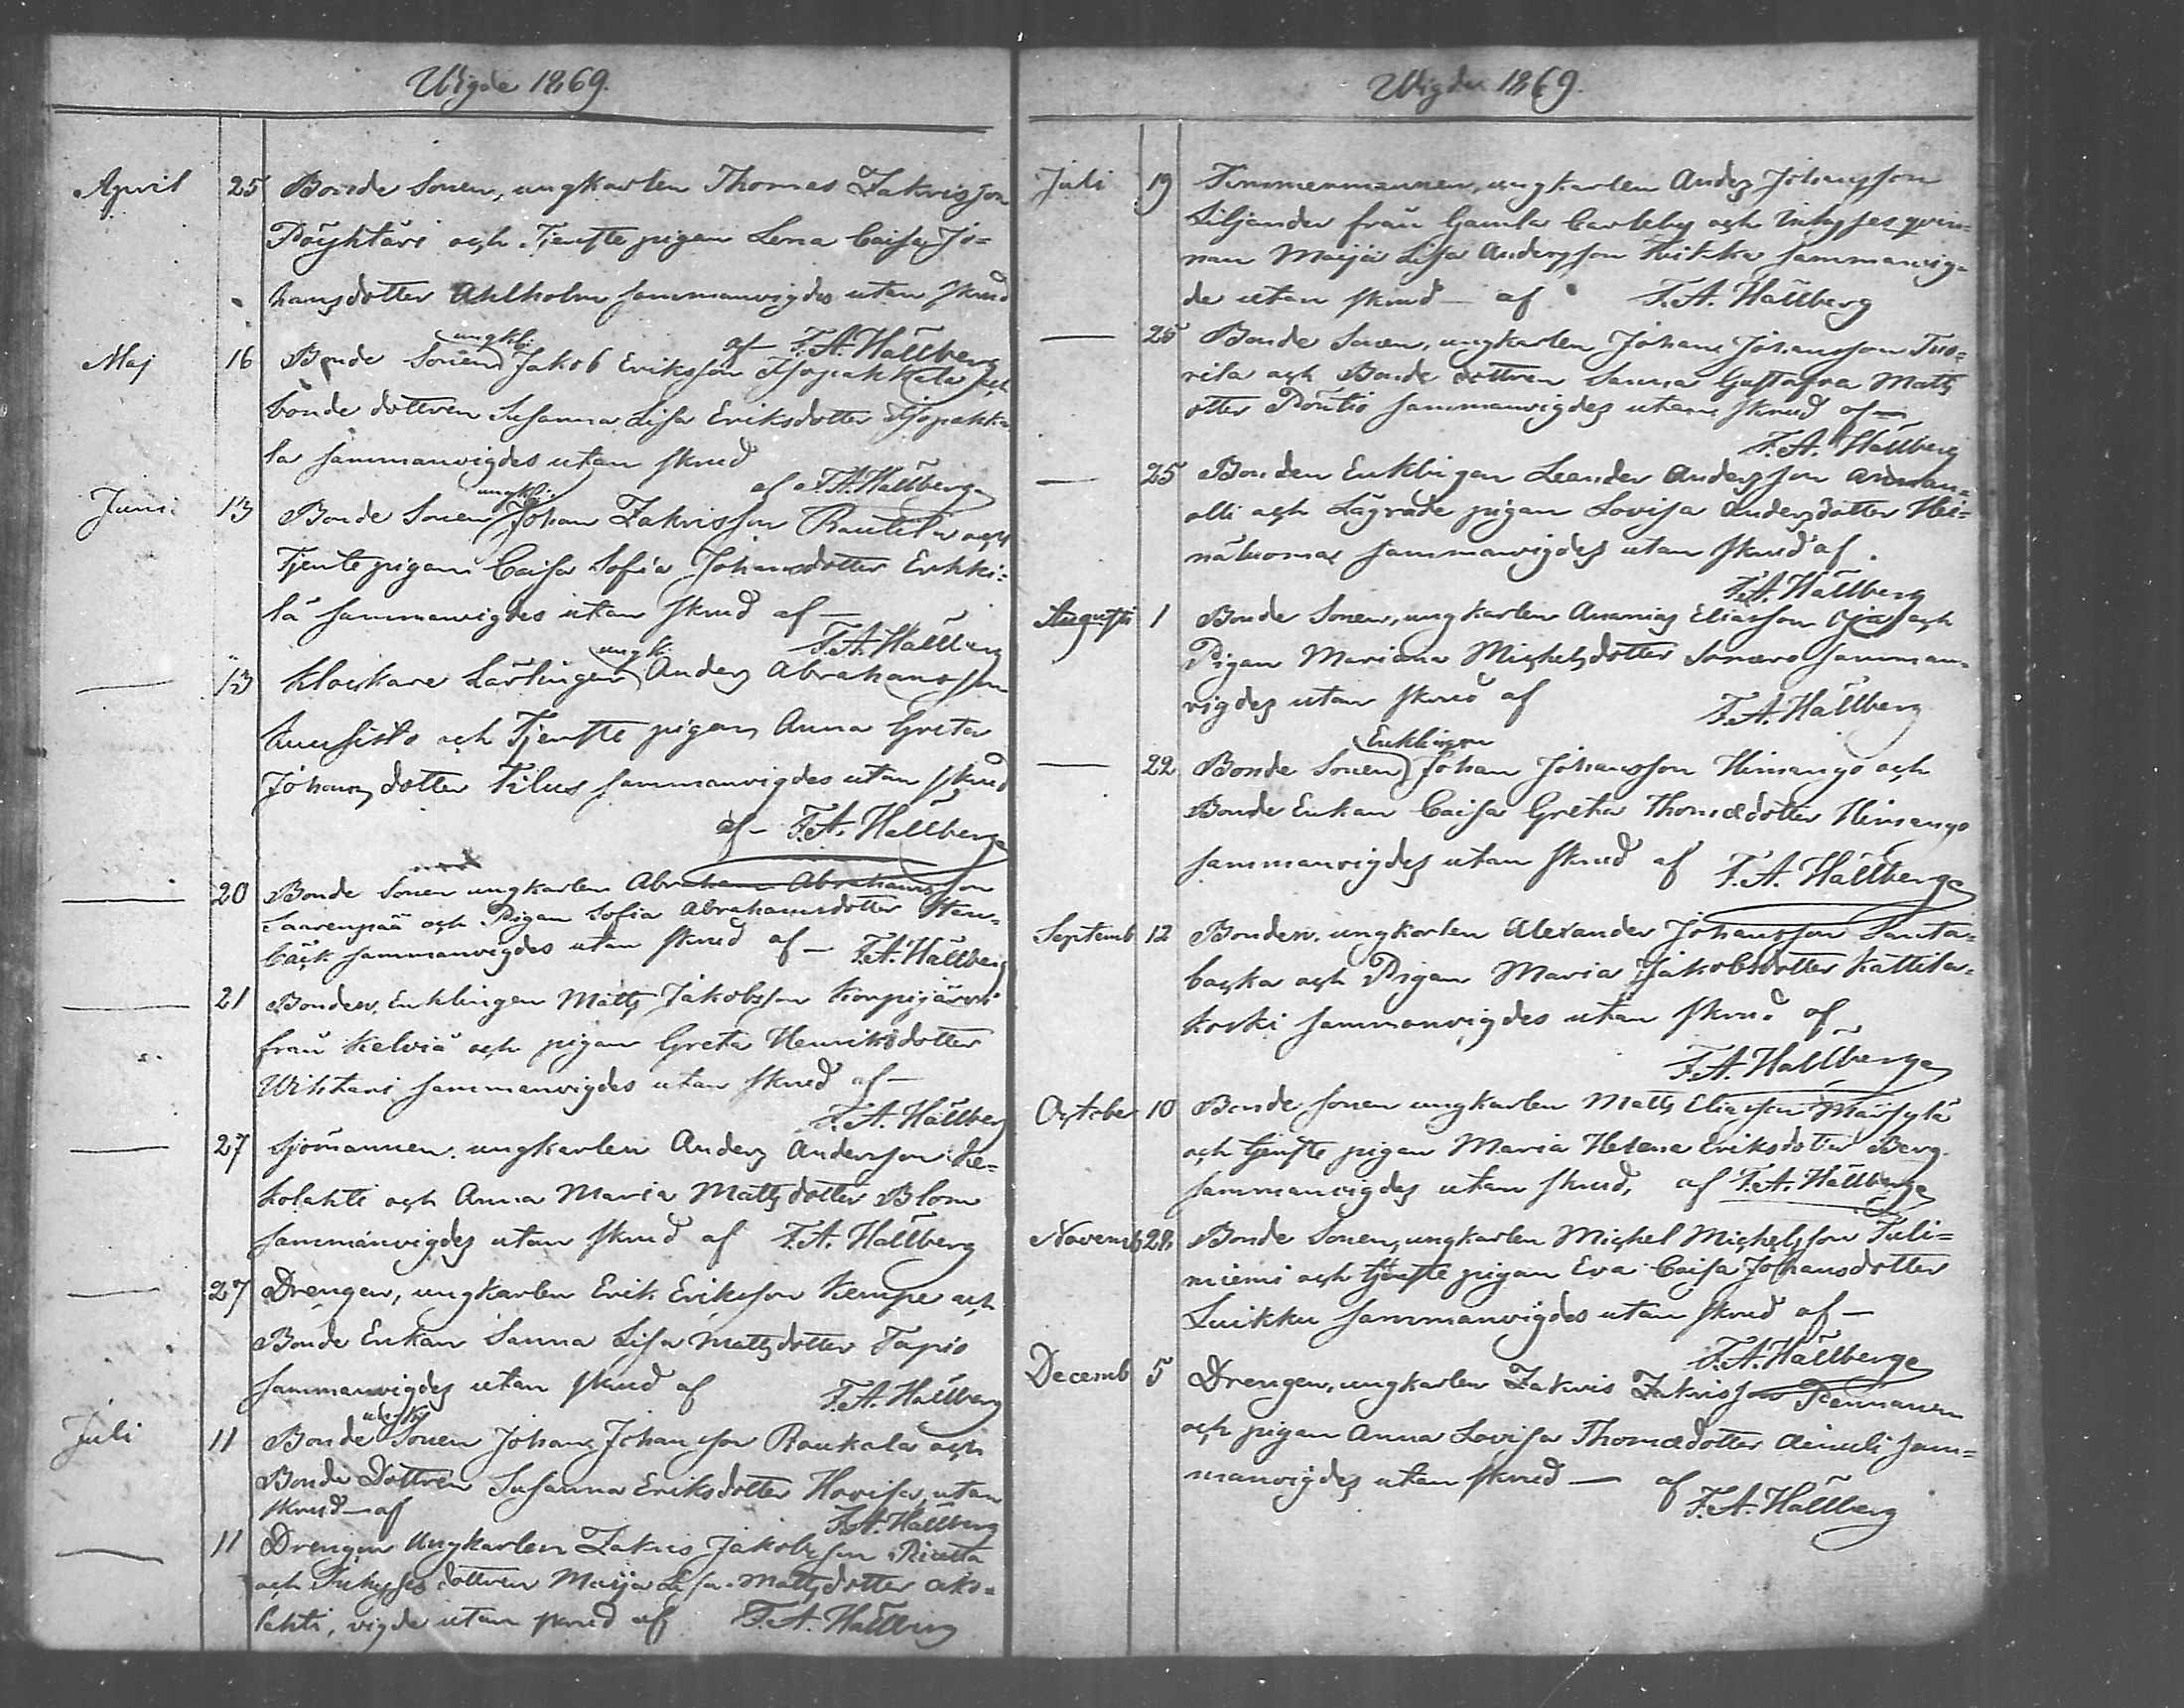 Wigde 1869.
April 25 Bonde Sonen, ungkarlen Thomas Zakrisson
Pöyhtäri och Tjenste pigan Lena Caisa Jo=
hansdotter Ahlholm sammanvigdes utan skrud
af F.A. Hällberg
Maj 16 Bonde Sonen ungk: Jakob Eriksson Isopahkala och
bonde dottren Susanna Lisa Eriksdotter Isopahka
la sammanvigdes utan skrud
af F.A. Hällberg
Juni 13 Bonde Sonen ungk: Johan Zakrisson Rautila och
Tjenste pigan Caisa Sofia Johansdotter Erkki=
lä sammanvigdes utan skrud af —
F.A. Hällberg
— 13 Klockare Lärlingen ungk: Anders Abrahamsson
Kuusisto och Tjenste pigan Anna Greta
Johans dotter Tilus sammanvigdes utan skrud
af — F.A. Hällberg
— 20 Bonde Sonen ungkarlen Abraham Abrahamsson
Saarenpää och Pigan Sofia Abrahamsdotter Sten=
bäck sammanvigdes utan skrud af — F.A. Hällberg
— 21 Bonden, Enklingen Matts Jakobsson Korpijärvi
från Kelviå och pigan Greta Henriksdotter
Wiktari sammanvigdes utan skrud af —
F.A. Hällberg
— 27 Sjömannen ungkarlen Anders Andersson Ke=
kolahti och Anna Maria Mattsdotter Blom
sammanvigdes utan skrud af F.A. Hällberg
— 27 Drengen, ungkarlen Erik Eriksson Kempe och
Bonde Enkan Sanna Lisa Mattsdotter Tapio
sammanvigdes utan skrud af F.A. Hällberg
Juli 11 Bonde ungk: Sonen Johan Johansson Raukala och
Bonde Dottren Susanna Eriksdotter Hovisa, utan
skrud — af F.A. Hällberg
— 11 Drengen Ungkarlen Zakris Jakobsson
och Inhyses dottren Maija Lisa Mattsdotter
lahti, vigde utan skrud af F.A. Hällberg
Wigde 1869.
Juli 19 Timmermannen, ungkarlen Anders Johansson
Siljander från Gamla Carleby och Inhyses qvin=
nan Maija Lisa Andersson Hikka sammanvig=
de utan skrud — af F.A. Hällberg
— 25 Bonde Sonen, ungkarlen Johan Johansson Tuo=
rila och Bonde dottren Sanna Gustafva Matts
otter Pöntiö sammanvigdes utan skrud af —
F.A. Hällberg
— 25 Bonden Enklingen Leander Andersson Annan=
olli och Lägrade pigan Lovisa Andersdotter Hei=
näluoma sammanvigdes utan skrud af.
F.A. Hällberg
Augusti 1 Bonde Sonen, ungkarlen Ananias Eliasson Oja och
Pigan Mariana Michelsdotter samman=
vigdes utan skrud af F.A. Hällberg
— 22 Bonde Sonen Enklingen Johan Johansson Himango och
Bonde Enkan Caisa Greta Thomædotter Himango
sammanvigdes utan skrud af F.A. Hällberg
Septemb 12 Bonden, ungkarlen Alexander Johansson Santa=
backa och Pigan Maria Jakobsdotter Kattila=
koski sammanvigdes utan skrud af
F.A. Hällberg
October 10 Bonde sonen ungkarlen Matts Eliasson Märsylä
och tjenste pigan Maria Helena Eriksdotter Berg
sammanvigdes utan skrud, af F.A. Hällberg
Novemb 28 Bonde Sonen, ungkarlen Michel Michelsson Tuli=
niemi och tjenste pigan Eva Caisa Johansdotter
Luikku sammanvigdes utan skrud af —
F.A. Hällberg
Decemb 5 Drengen, ungkarlen Zakris Zakrisson
och pigan Anna Lovisa Thomædotter Ainali sam=
manvigdes utan skrud — af
F.A. Hällberg